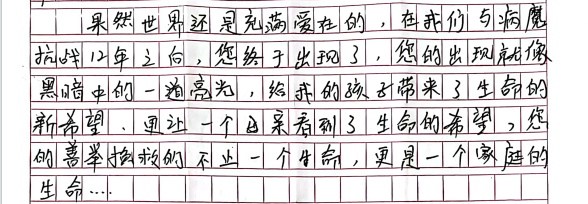 果然世界还是充满爱在的，在我们与病魔
抗战12年之向，您终于出现了，您的出现就像
黑暗中的一道亮光，给我的孩子带来了生命的
新希望、更让一个母亲看到了生命的希望，您
的善举拯救的不止一个生命，更是一个家庭的
生命....